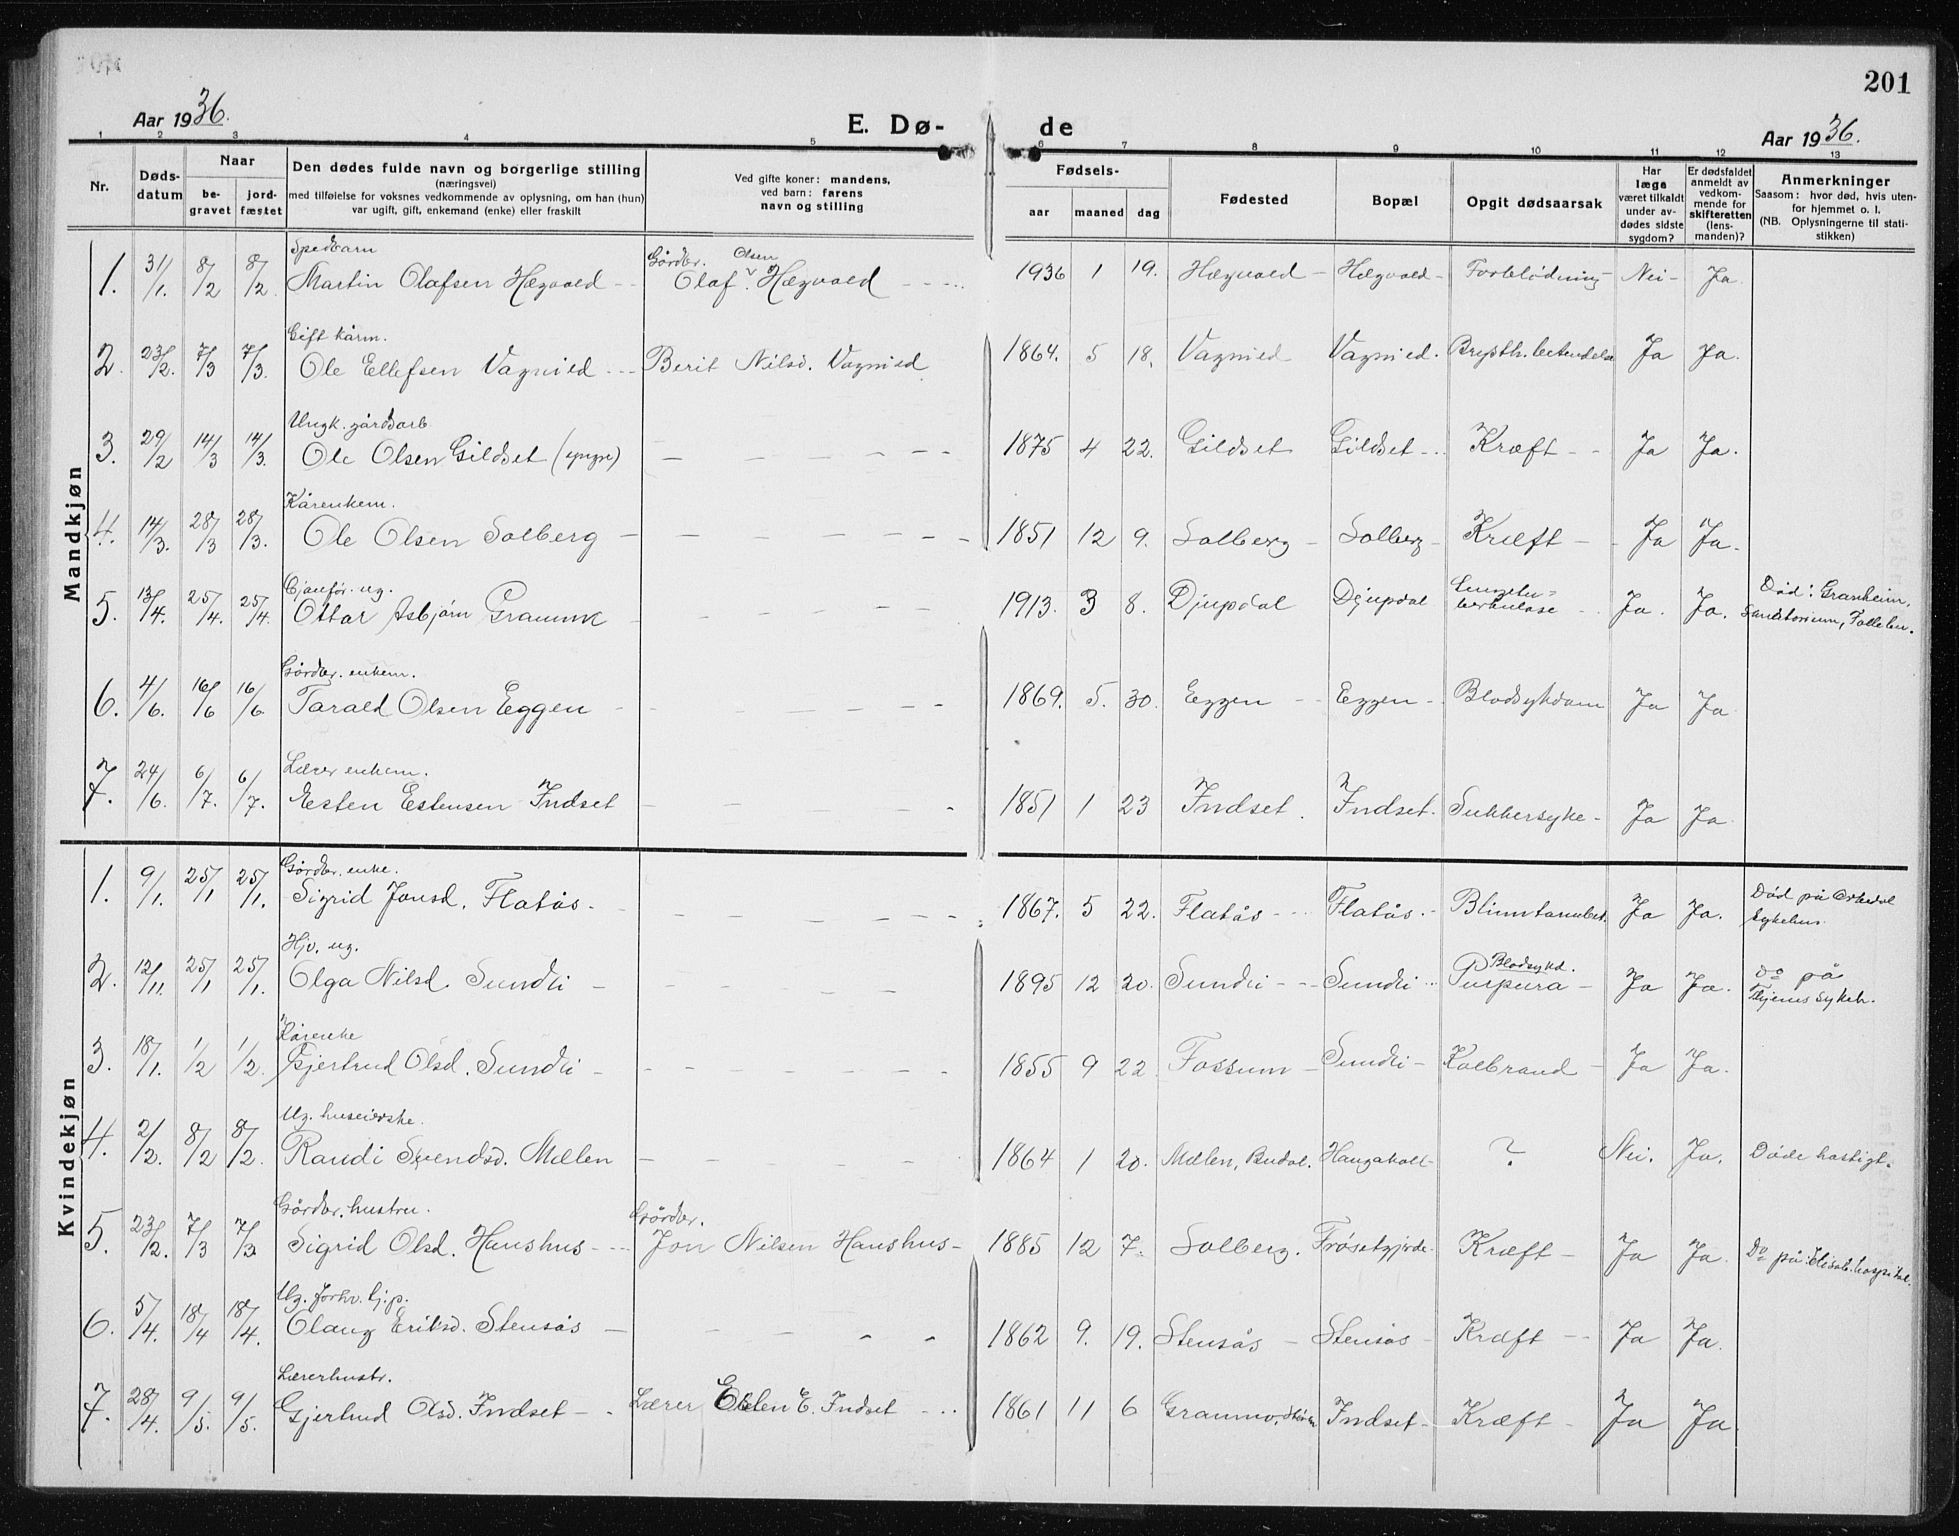 201
Aar 1936.
E. Dø-
de
Aar 1936.
1 2 3 4 5 6 7 8 9 10 11 12 13
Nr.
Døds-
datum
Naar
be-
gravet
jord-
fæstet
Den dødes fulde navn og borgerlige stilling
(næringsvei)
med tilføielse for voksnes vedkommende av oplysning, om han (hun)
var ugift, gift, enkemand (enke) eller fraskilt
Ved gifte koner: mandens,
ved barn: farens
navn og stilling
Fødsels-
aar maaned dag
Fødested
Bopæl
Opgit dødsaarsak
Har
læge
været tilkaldt
under av-
dødes sidste
sygdom?
Er dødsfaldet
anmeldt av
vedkom-
mende for
skifteretten
(lens-
manden)?
Anmerkninger
Saasom: hvor død, hvis uten-
for hjemmet o. l.
(NB. Oplysningerne til stati-
stikken)
Mandkjøn
Spedbarn Gårdbr. Olsen
1. 31/1. 8/2 8/2. Martin Olafsen Hægvald -- Olaf Hægvald - - - 1936 1 19. Hægvald - Hægvald - Forblødning - Nei - Ja.
Gift kårm.
2. 23/2. 7/3 7/3. Ole Ellefsen Vagnild --- Berit Nilsd. Vagnild 1864. 5 18. Vagnild Vagnild. Brysth. betendelse Ja Ja.
Ungk. gårdsarb
3. 29/2 14/3 14/3. Ole Olsen Gildset (yngre) - - - 1875 4 22. Gildset Gildset -.. Kræft - - Ja Ja.
Kårenkem.
4. 14/3. 28/3 28/3. Ole Olsen Solberg - - - 1851 12 9. Solberg - Solberg - Kræft - - Ja Ja.
ug.
5. 13/4. 25/4. 25/4. Ottar Asbjørn - - - 1913. 3 8. Djupdal Djupdal Lungetu=
berkulose - Ja. Ja. Død: Granheim,
Sanatorium, Follebu.
Gårdbr. enkem.
6. 4/6. 16/6 16/6 Tarald Olsen Eggen - - - 1869. 5. 30. Eggen - - Eggen - Blodsykdom Ja Ja
Lærer enkem.
7. 24/6. 6/7. 6/7. Esten Estensen Indset - - - 1851 1 23 Indset. Indset. Sukkersyke - Ja Ja.
Kvindekjøn
Gårdbr. enke.
1. 9/1. 25/1 25/1. Sigrid Jonsd. Flatås. - - - 1867. 5 22. Flatås - - Flatås. - Blintarmbet. Ja Ja. Død på Orkedal
sykehus
Hjv. ug.
2. 12/11. 25/1 25/1. Olga Nilsd. Sundli - - - 1895 12 20. Sundli - - Sundli .. Blodsykd.
Purpura - Ja Ja. Do på
sykeh.
Kårenke
3. 18/1. 1/2 1/2. Gjertrud Olsd. Sundli - - - 1855 9 22 Fossum - Sundli - Kolbrand - Ja Ja.
Ug. huseierske.
4. 2/2. 8/2 8/2. Randi Svendsd. Mælen - - - 1864 1 20. Mælen, Budal. Haugaholt - ? Nei. Ja. Døde hastigt.
Gårdbr. hustru. Gårdbr.
5. 23/2. 7/3 7/3 Sigrid Olsd. Hanshus - - - Jon Nilsen Hanshus - 1885 12 7. Solberg. Frøsetgjerde. Kræft - Ja Ja. Do på Elisab. hospital.
Ug. forhv. tj.p.
6. 5/4. 18/4 18/4. Olaug Eriksd. Stensås - - - 1862 9. 19. Stensås - Stensås - Kræft - - Ja Ja.
Lærerhustr.
7. 28/4. 9/5. 9/5. Gjertrud Olsd. Indset - - Lærer Esten E. Indset - - 1861 11 6 Indset - Kræft - Ja Ja.